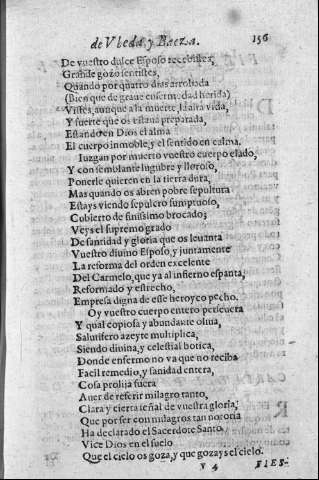 de Vbeda, y Baeza. 156
De vuestro dulce Esposo recebistes,
Grande gozo sentistes,
Quando por quatro dias arrobada
(Bien que de graue enfermedad herida)
Vistes, aunque a la muerte, la vida,
Y suerte que os estaua preparada,
Estando en Dios el alma
El cuerpo inmoble, y el sentido en calma.
Iuzgan por muerto vuestro cuerpo elado,
Y con semblante lugubre y lloroso,
Ponerle quieren en la tierra dura,
Mas quando os abren pobre sepultura
Estays viendo sepulcro sumptuoso,
Cobierto de finissimo brocado;
Veys el supremo grado
De santidad y gloria que os leuanta
Vuestro diuino Esposo, y juntamente
La reforma del orden excelente
Del Carmelo, que ya al infierno espanta,
Reformado y estrecho,
Empresa digna de esse heroyco pecho.
Oy vuestro cuerpo entero perseuera
Y qual copiosa y abundante oliua,
Salutifero azeyte multiplica,
Siendo diuina, y celestial botica,
Donde enfermo no va que no reciba
Facil remedio, y sanidad entera,
Cosa prolija fuera
Auer de referir milagro tanto,
Clara y cierta señal de vuestra gloria,
Que por ser con milagros tan notoria
Ha declarado el Sacerdote Santo
Vice Dios en el suelo
Que el cielo os goza, y que gozays el cielo.
V 4 SIES-